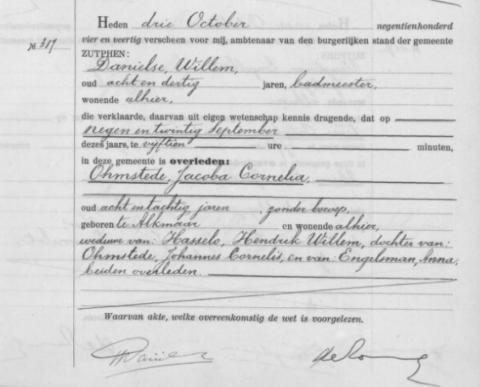 Heden drie October negentienhonderd
No 387
vier en veertig verscheen voor mij, ambtenaar van den burgerlijken stand der gemeente
ZUTPHEN:
Danielse, Willem,
oud acht en dertig jaren, badmeester,
wonende alhier,
die verklaarde, daarvan uit eigen wetenschap kennis dragende, dat op
negen en twintig September
dezes jaars, te vijftien ure minuten,
in deze gemeente is overleden:
Ohmstede, Jacoba Cornelia,
oud acht en tachtig jaren zonder beroep,
geboren te Alkmaar en wonende alhier,
weduwe van: Hasselo, Hendrik Willem, dochter van:
Ohmstede, Johannes Cornelis, en van: Engelsman, Anna,
beiden overleden.
Waarvan akte, welke overeenkomstig de wet is voorgelezen.